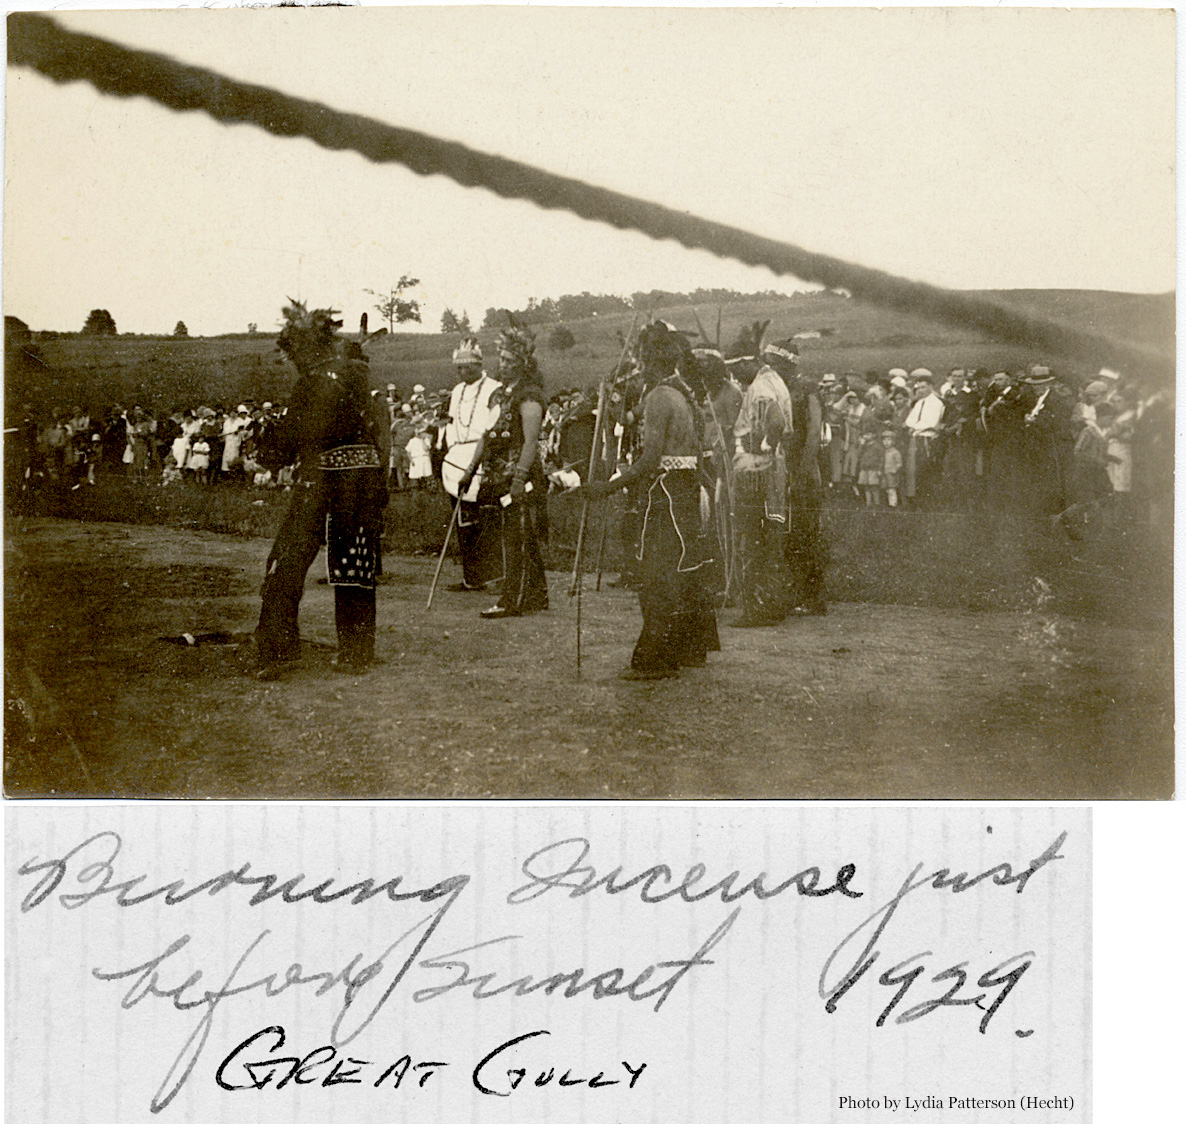 Burning Incense just
before Sunset 1929.
GREAT GULLY
Photo by Lydia Patterson (Hecht)